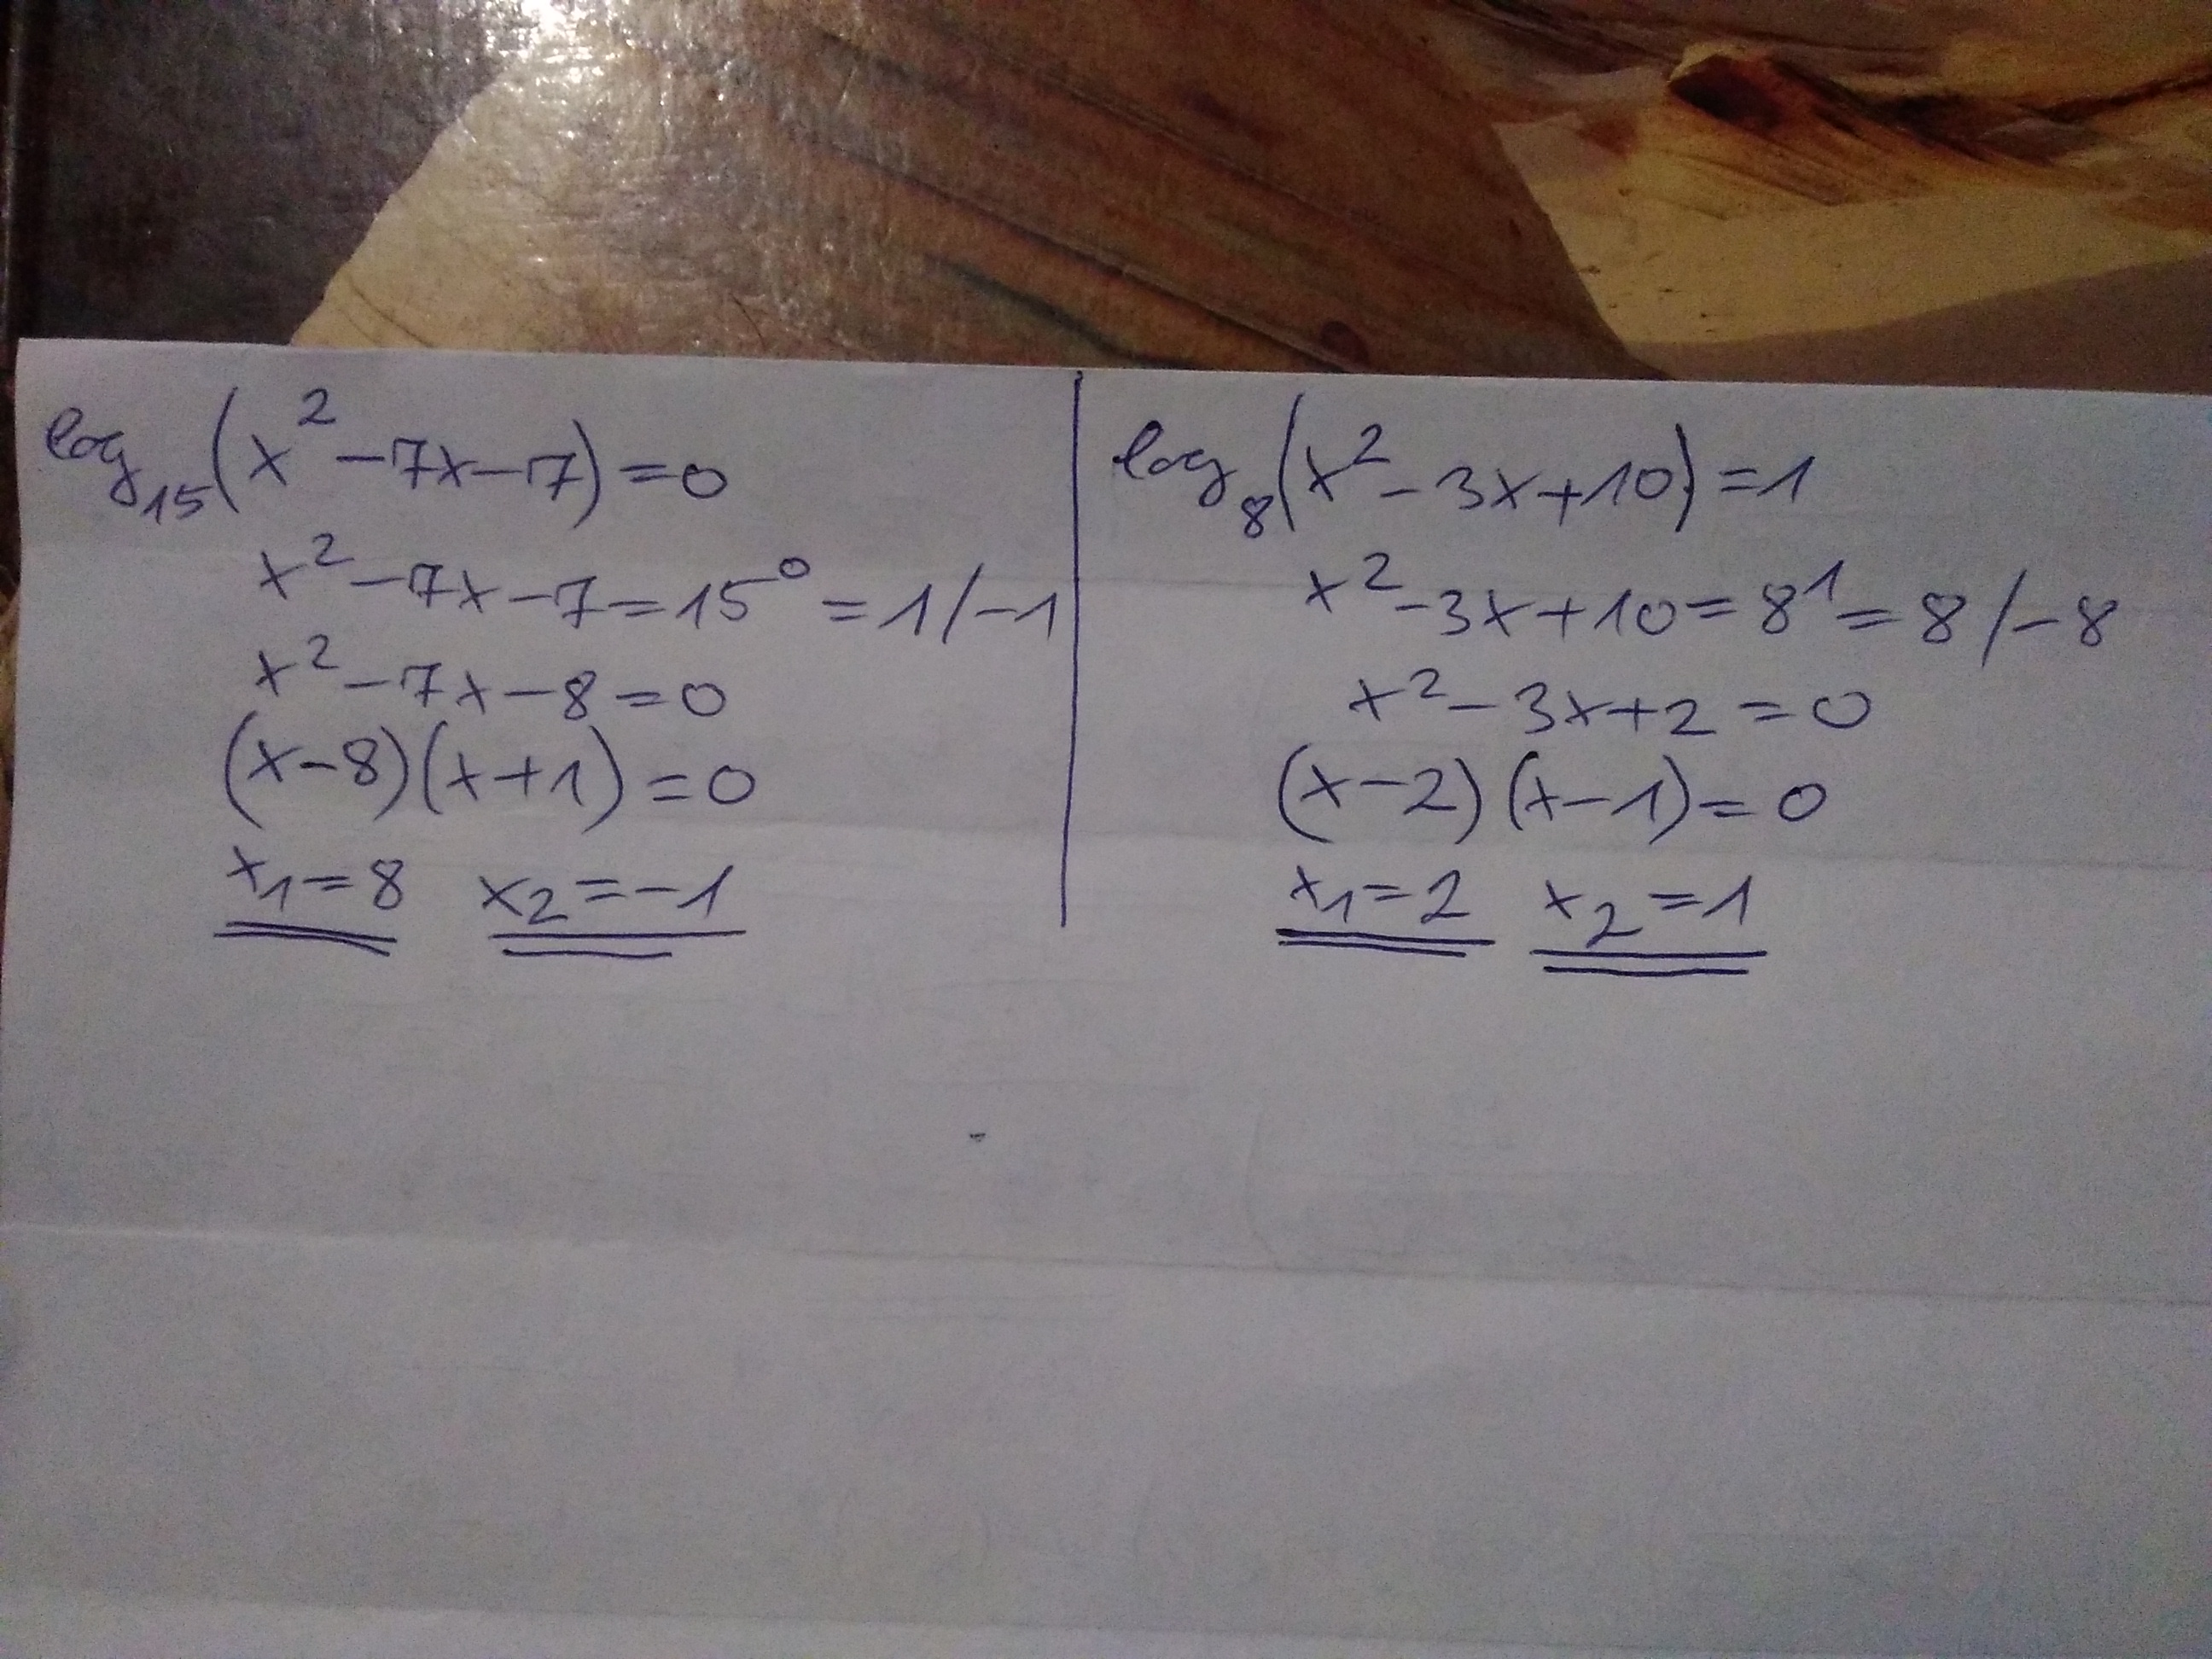 log₁₅(x²-7x-7)=0
x²-7x-7=15⁰=1/-1
x²-7x-8=0
(x-8)(x+1)=0
x₁=8 x₂=-1
log₈(x²-3x+10)=1
x²-3x+10=8¹=8/-8
x²-3x+2=0
(x-2)(x-1)=0
x₁=2 x₂=1